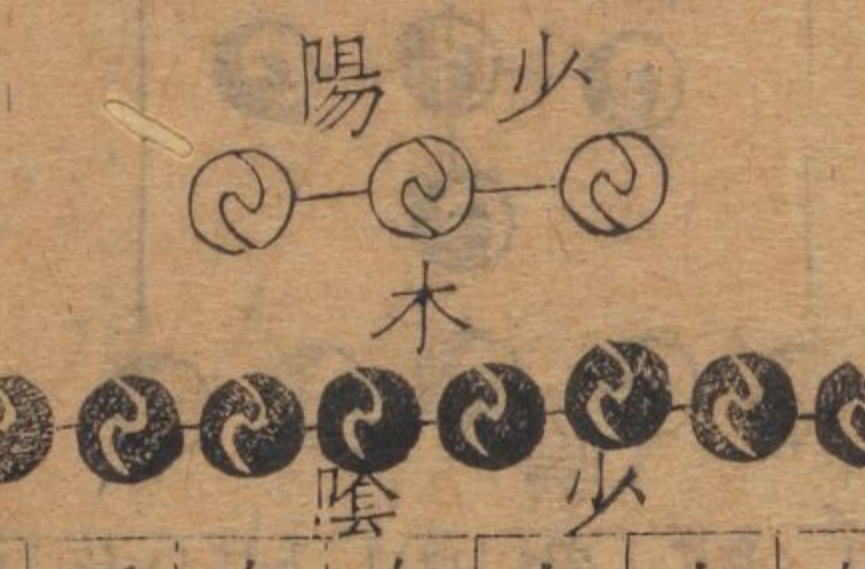 少陽
木
少陰